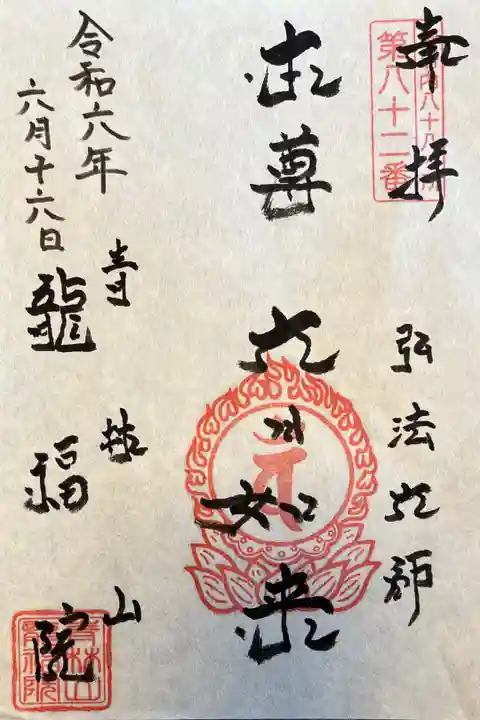 奉拝
内八十八
第八十二番
弘法大師
本尊
大日如来
青林山
龍福院
令和六年
六月十六日